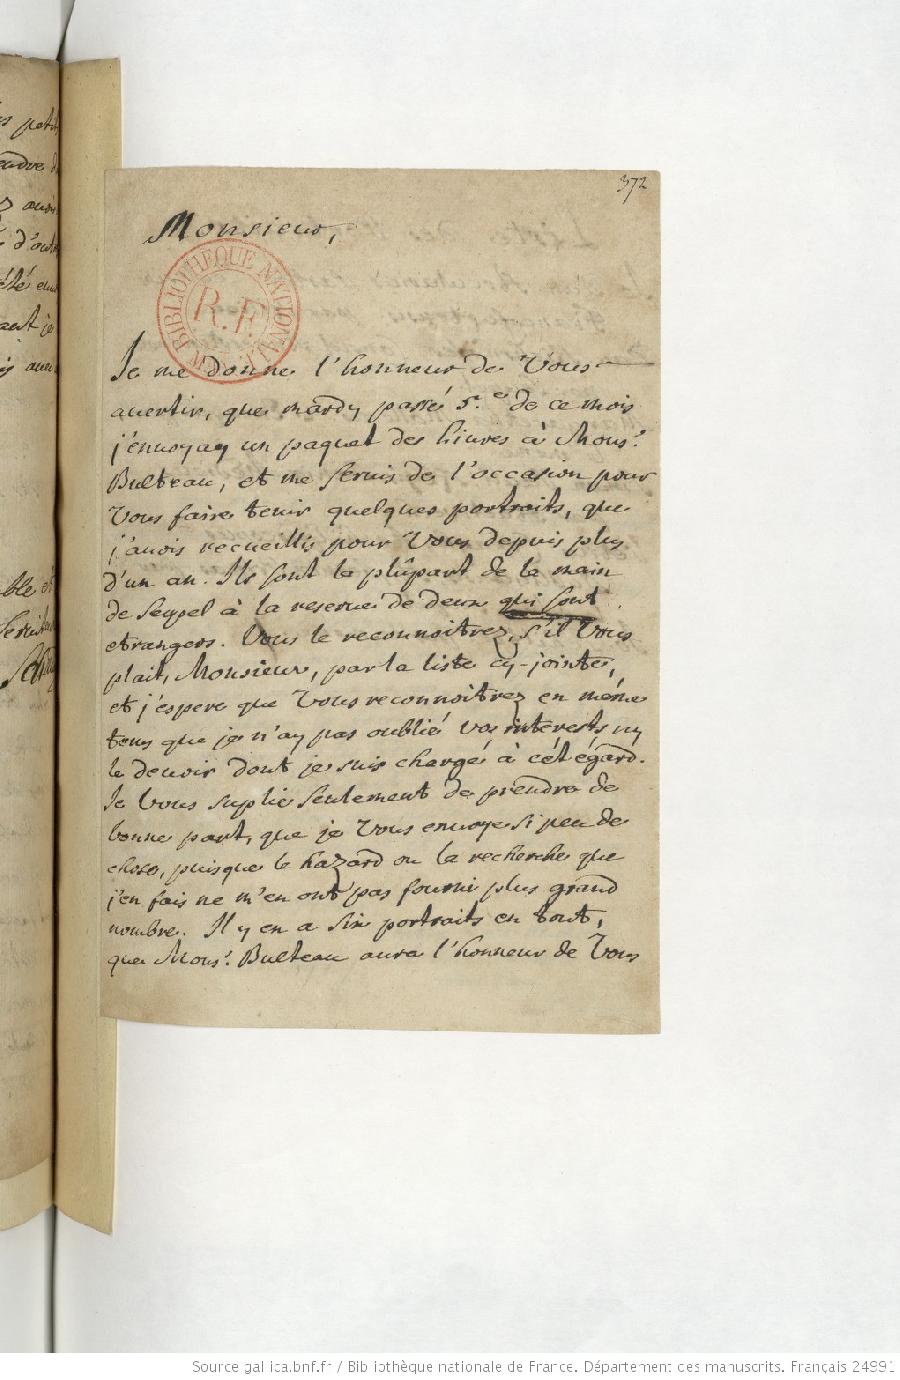 372
Monsieur,
BIBLIOTHEQUE NATIONALE
R.F.
Je me donne l'honneur de Vous
auertir, que mardy passé 5.e de ce mois
j'enuoyay un paquet des liures à Mons.r
Bulteau, et me seruis de l'occasion pour
Vous faire tenir quelques portraits, que
j'auois recueillis pour Vous depuis plus
d'un an. Ils sont la plûpart de la main
de Seypel à la reserue de deux qui sont
etrangers. Vous le reconnoitrez, s'il Vous
plait, Monsieur, par la liste cy-jointe,
et j'espere que Vous reconnoitrez en même
tems que je n'ay pas oublié vos interests ny
le deuoir dont je suis chargé à cét égard.
Je Vous suplie seulement de prendre de
bonne part, que je Vous enuoye si peu de
chose, puisque le hazard ou la recherche que
j'en fais ne m'en ont pas fourni plus grand
nombre. Il y en a six portraits en tout,
que Mons.r Bulteau aura l'honneur de Vous
Source gallica.bnf.fr / Bibliothèque nationale de France. Département des manuscrits. Français 24991